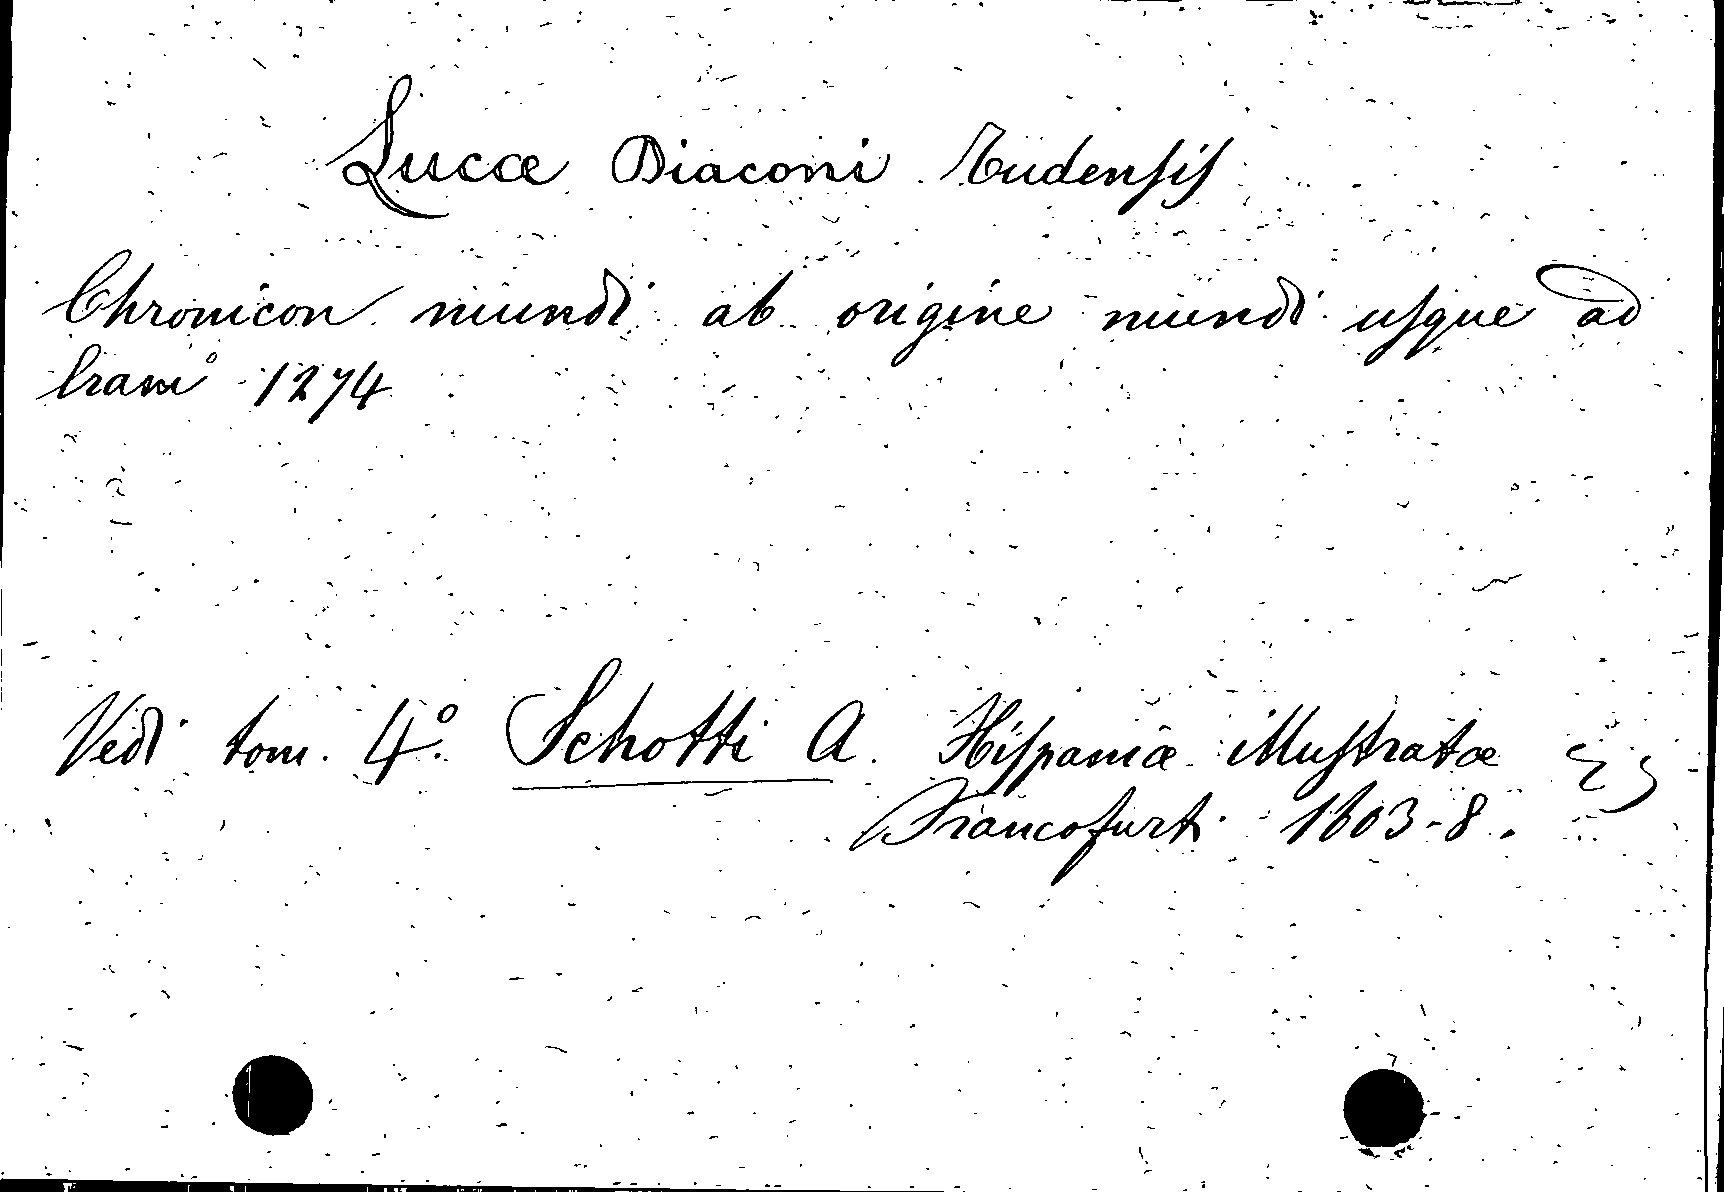 Lucæ Diaconi Tudensis
Chronicon mundi ab origine mundi usque ad
Eram 1274
Vedi tom. 4.º Schotti A. Hispaniæ illustratæ &
Francofurti 1603-8.